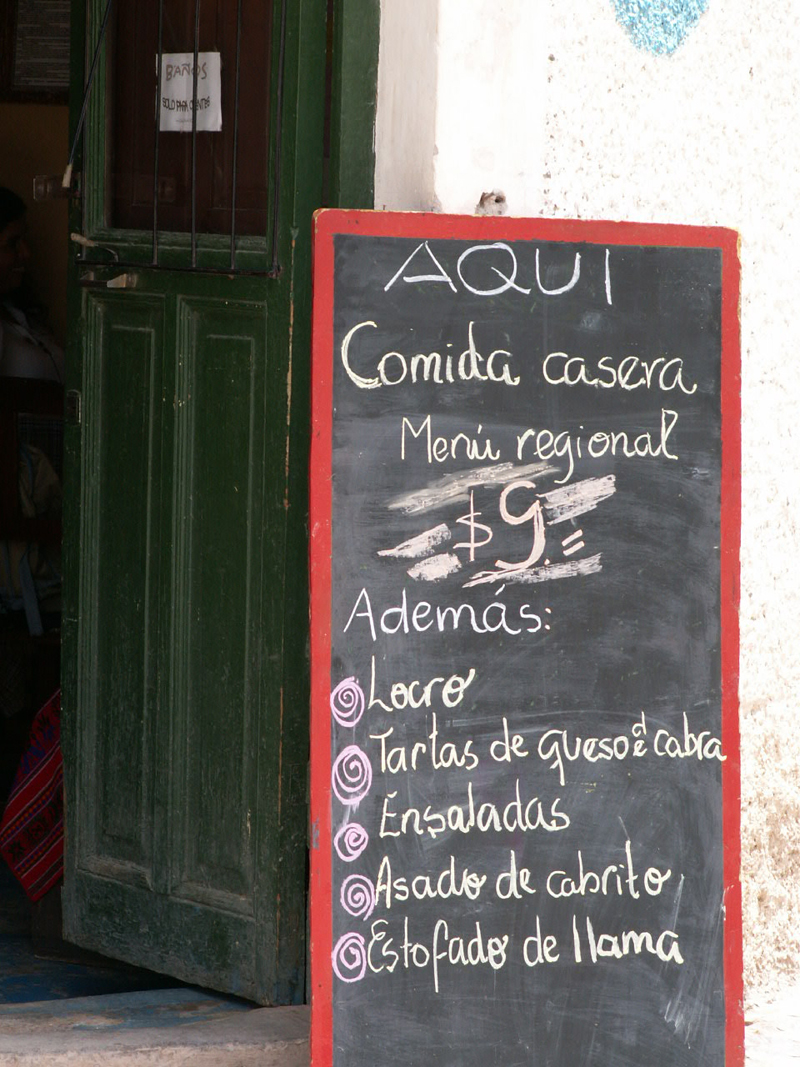 BAÑOS
SOLO PARA CLIENTES
AQUI
Comida casera
Menú regional
$ 9.=
Además:
Locro
Tartas de queso de cabra
Ensaladas
Asado de cabrito
Estofado de llama